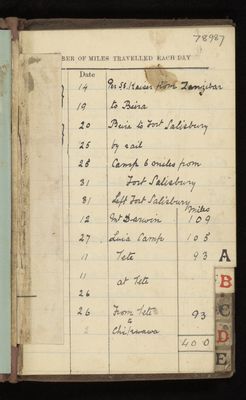 78987
BER OF MILES TRAVELLED EACH DAY
Date
14 Per SS Kaiser from Zanzibar
19 to Beira
20 Beira to Fort Salisbury
25 by rail
28 Camp 6 miles from
31 Fort Salisbury
31 Left Fort Salisbury
Miles
12 Mt Darwin 109
27 Luia Camp 105
11 Tete 93
11
at Tete
26
26 From Tete 93
to
2 Chikwawa
400
A
B
C
D
E